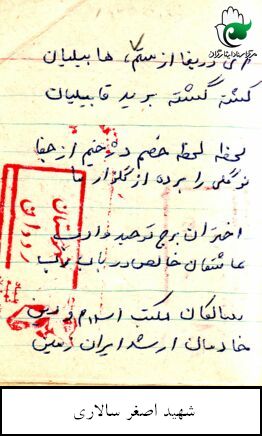 ای دریغا از ستم، هابیلیان
کشته گشته برید قابیلیان
لحظه لحظه خصم دژخیم از جفا
نوگلی را برده از گلزار ما
اختران برج توحید و ادب
عاشقان خالص در باب رب
سالکان مکتب اسلام و دین
خادمان ارشد ایران زمین
شهید اصغر سالاری